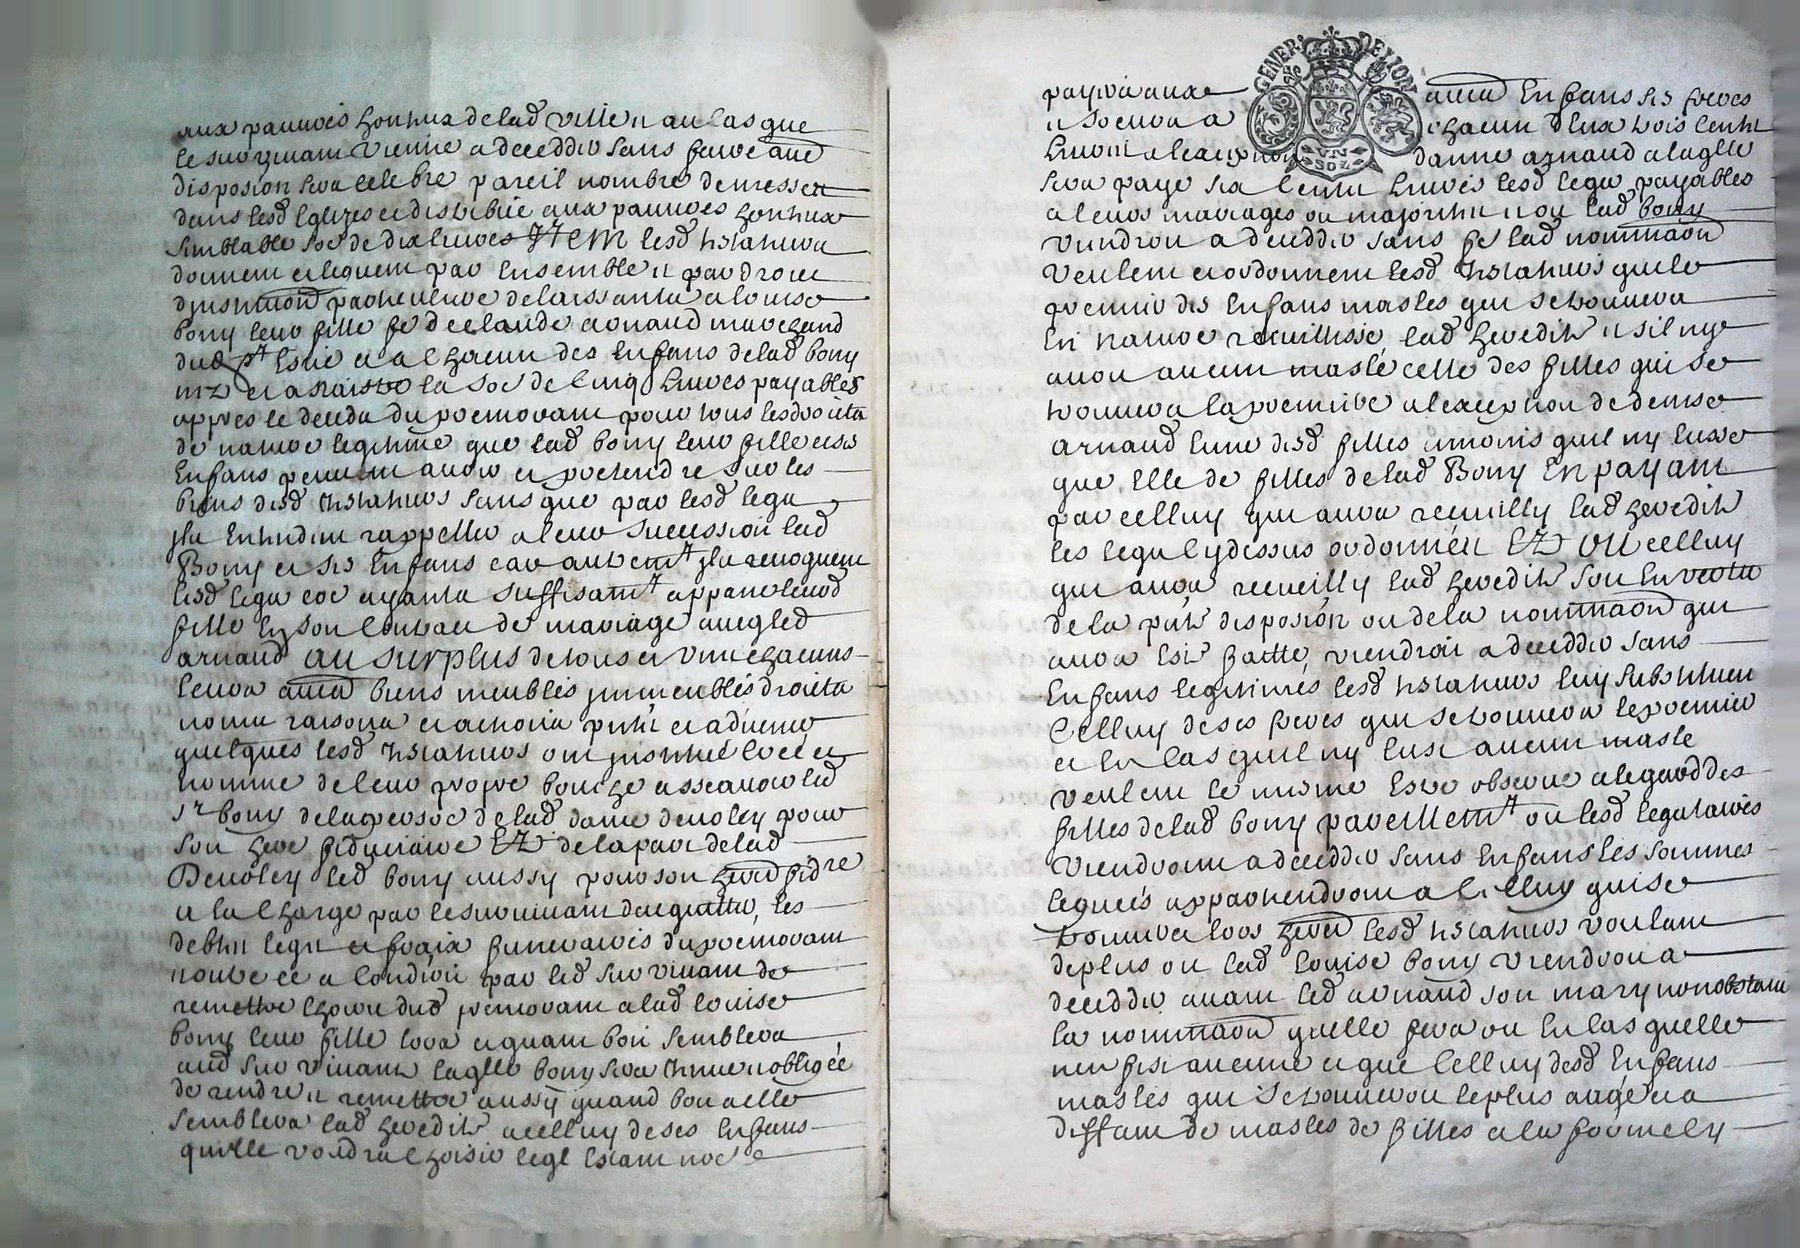 aux pauvres honteux de lad ville et au cas que
le survivant vienne a decedder sans faire auce
disposion sera celebré pareil nombre de messes
dans lesd Eglizes et distribué aux pauvres honteux
semblable soe de dix livres Item lesd testateurs
donnent et leguent par ensemble et par droit
dinstitution particuliere delaissant a louise
bony leur fille fe de claude arnaud marchand
dud et a chacun des enfans de lad bony
nez et a naistre la soe de cinq livres payables
appres le deceda du premourant pour tous lesd droicts
de nature legitime que lad bony leur fille et ses
Enfans peuvent avoir et pretendre sur les
biens desd testateurs sans que par lesd legs
ils entendent rappeller a leur succession lad
Bony et ses Enfans car autremt ils revoquent
lesd legs ayants suffisamt appane leurd
fille en son contract de mariage avec led
arnaud au surplus de tous et uns chacuns
leurs autres biens meubles immeubles droicts
noms raisons et actions pnts et advenir
quelques lesd testateurs ont institué et
nommé de leur propre bouche assavoir led
sr bony de la persoe de lad dame devoley pour
son here fiduciaire Et de la part de lad
Devoley led bony aussy pour son hered fidre
a la charge par le survivant dacquitter les
debtes legs et fraix funeraires du premourant
et a condition par led survivant de
remettre lhoirie dud premourant a lad louise
bony leur fille lors et quant bon semblera
aud survivant laqlle bony sera tenue et obligée
de rendre et remettre aussy quand bon a elle
semblera lad heredité a celluy de ses Enfans
quelle voudra choisir legl estant
payera aux autres Enfans ses freres
et soeurs a chacun deux trois cents
livres a lexception danne arnaud a laqlle
sera payé six cents livres lesd legs payables
a leurs mariages ou majorité et ou lad bony
viendroit a decedder sans fe lad nomination
veulent et ordonnent lesd testateurs que le
premier des Enfans masles qui se trouvera
En nature recueillisse lad heredité et sil ny
avoit aucun masle celle des filles qui se
trouvera la premiere a lexception de denise
arnaud lune desd filles a moins quil ny eusse
que Elle de filles de lad Bony En payant
par celluy qui aura recueilly lad heredité
les legs cydessus ordonnés Et ou celluy
qui aura recueilly lad heredité soit en vertu
de la pnte disposion ou de la nomination qui
aura esté faitte viendroit a decedder sans
Enfans legitimes lesd testateurs luy substituent
Celluy de ses freres qui se trouvera le premier
et en cas quil ny eust aucun masle
veulent le mesme estre observé a legard des
filles de lad bony pareillemt ou lesd legataires
viendroient a decedder sans Enfans les sommes
leguées appartiendront a celluy qui se
trouvera lors hered lesd testateurs voulant
de plus ou lad louise bony viendroit a
decedder avant led arnaud son mary nonobstant
la nomination quelle fera ou en cas quelle
nen fist aucune et que celluy desd Enfans
masles qui se trouvera le plus aagé et a
deffaut de masles de filles a la forme cy